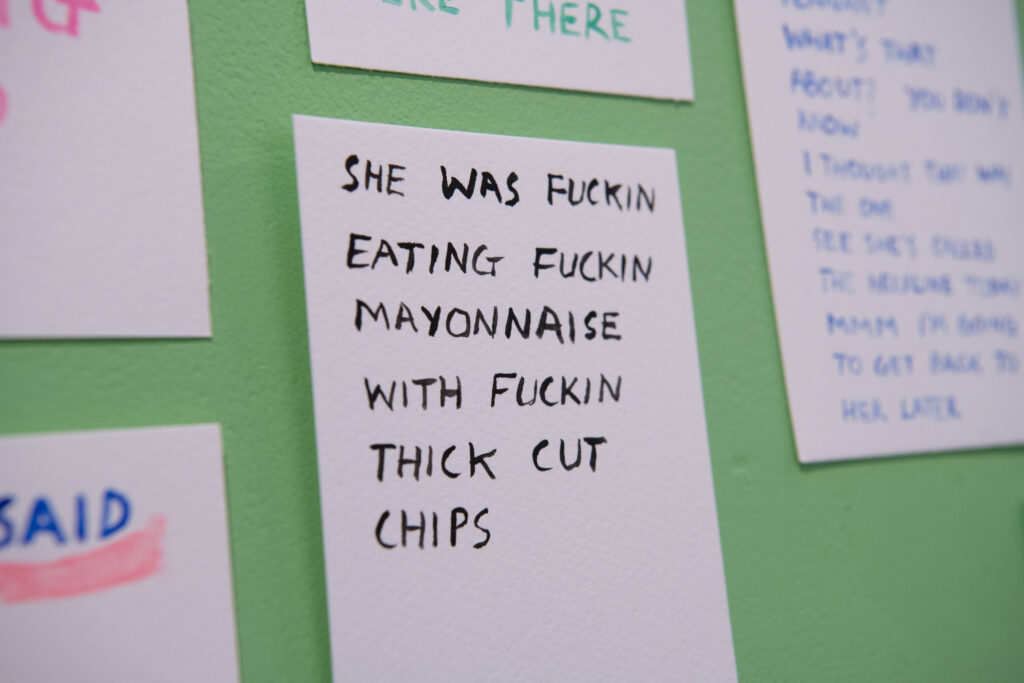 THERE
SHE WAS FUCKIN
EATING FUCKIN
MAYONNAISE
WITH FUCKIN
THICK CUT
CHIPS
SAID
WHAT'S THAT
ABOUT? YOU DON'T
KNOW
I THOUGHT THAT WAS
THE ONE
SEE SHE'S CALLED
THE HELPLINE TODAY
MMM I'M GOING
TO GET BACK TO
HER LATER